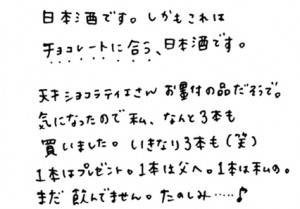 日本酒です。しかもこれは
チョコレートに合う、日本酒です。
天才ショコラティエさん お墨付の品だそうで。
気になったので私、なんと3本も
買いました。いきなり3本も(笑)
1本はプレゼント。1本は父へ。1本は私の。
まだ飲んでません。たのしみ……♪